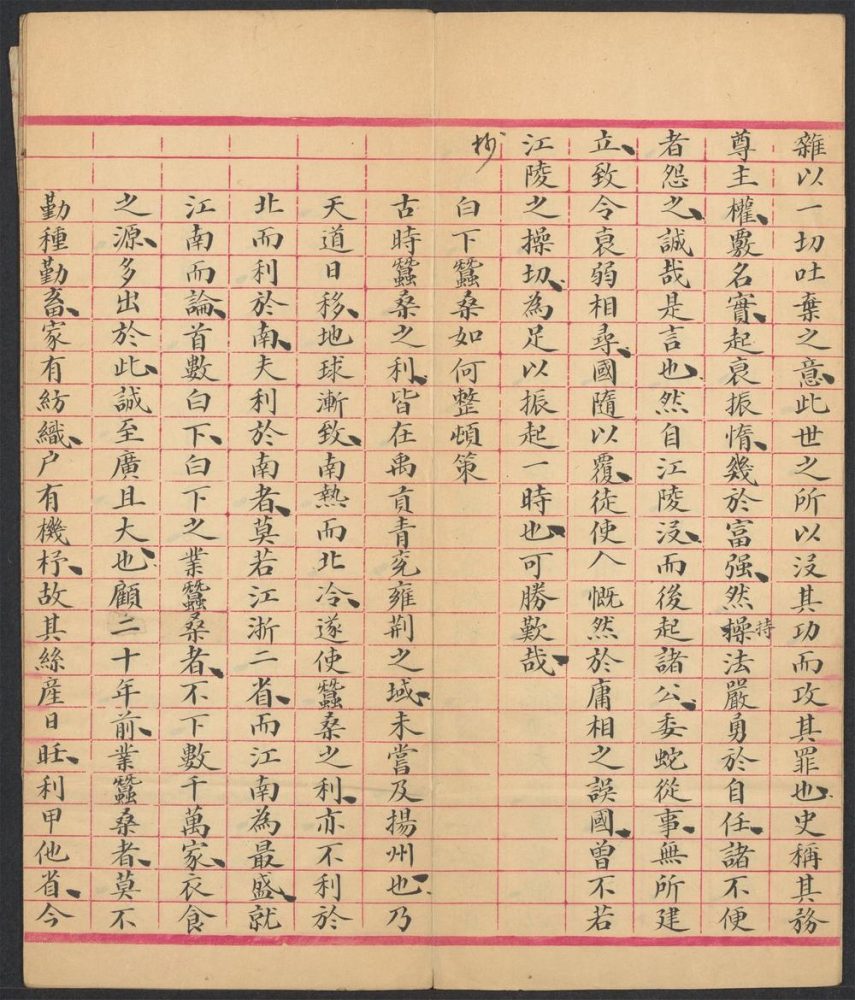 雜以一切吐棄之意、此世之所以沒其功而攻其罪也、史稱其務
尊主權、覈名實、起衰振惰、幾於富强、然操持法嚴勇於自任、諸不便
者怨之、誠哉是言也、然自江陵沒、而後起諸公、委蛇從事、無所建
立、致令衰弱相尋、國隨以覆、徒使人慨然於庸相之誤國、曾不若
江陵之操切、為足以振起一時也、可勝歎哉、
抄 白下蠶桑如何整頓策
古時蠶桑之利、皆在禹貢青兗雍荆之域、未嘗及揚州也、乃
天道日移、地球漸致、南熱而北冷、遂使蠶桑之利、亦不利於
北而利於南、夫利於南者、莫若江浙二省、而江南為最盛、就
江南而論、首數白下、白下之業蠶桑者、不下數千萬家、衣食
之源、多出於此、誠至廣且大也、顧二十年前、業蠶桑者、莫不
勤種勤畜、家有紡織、户有機杼、故其絲產日旺、利甲他省、今